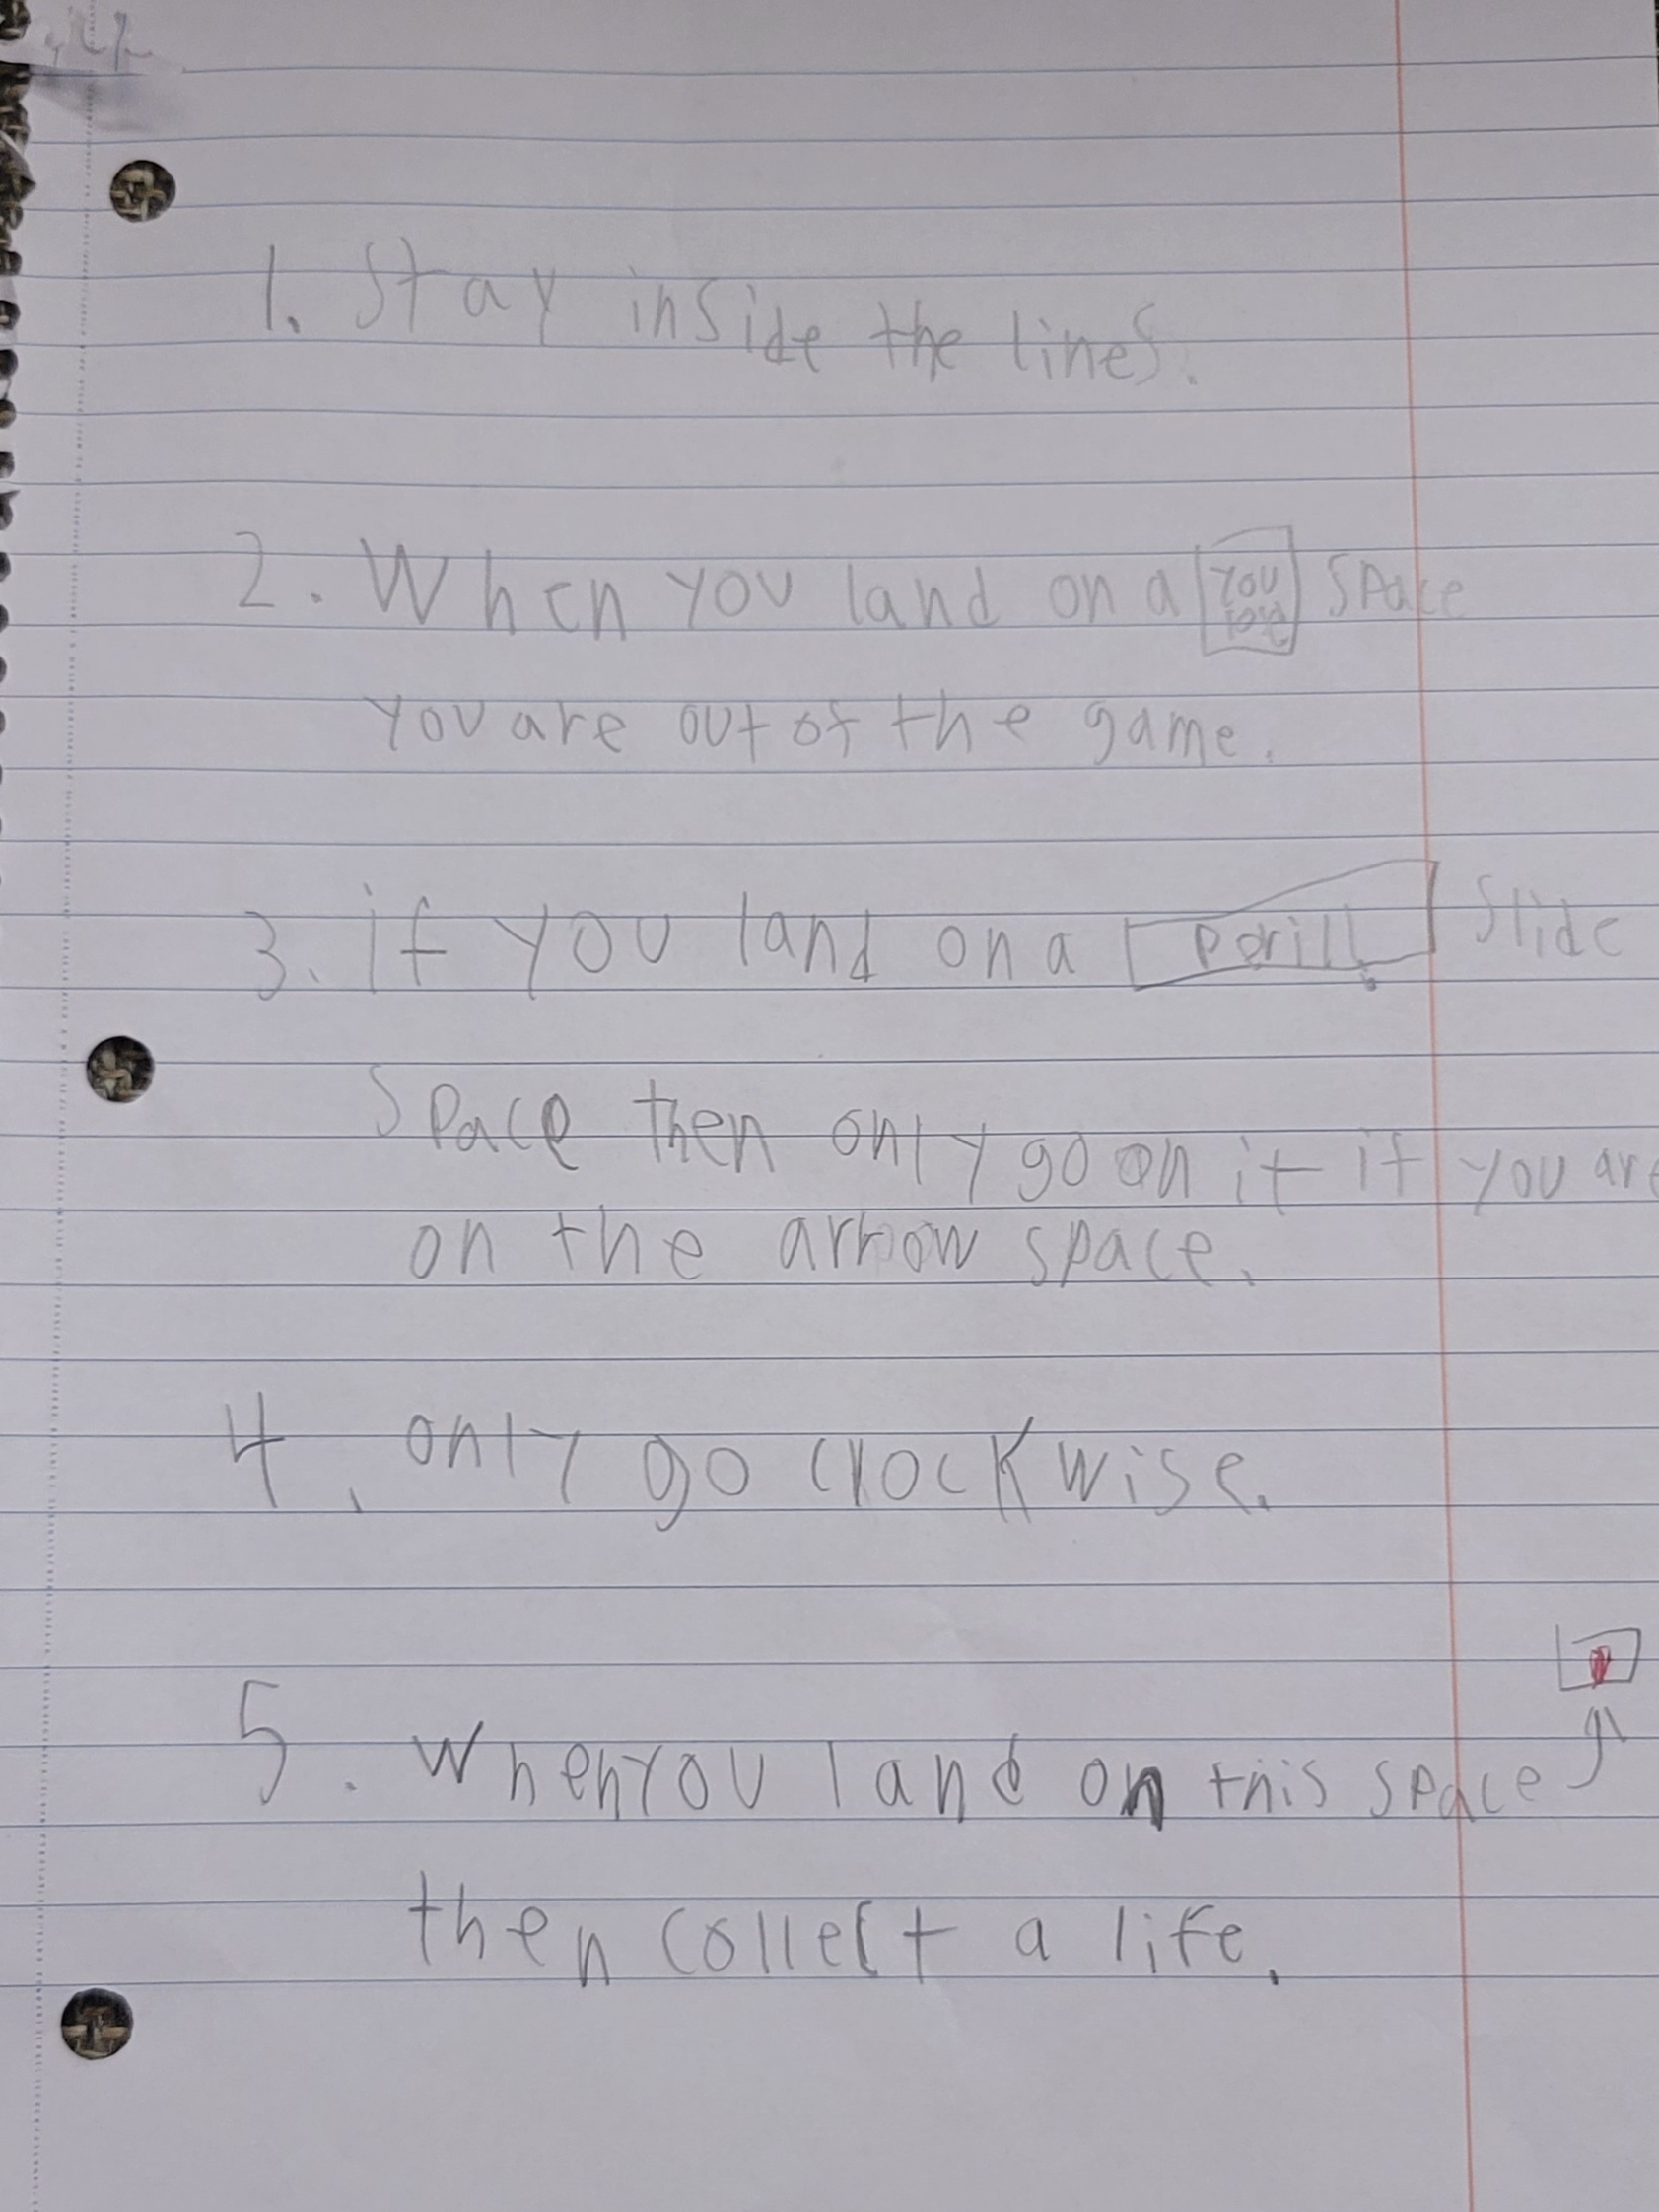 1. Stay inside the lines.
2. When you land on a you lose space
you are out of the game.
3. if you land on a perill slide
space then only go on it if you are
on the arrow space.
4. only go clockwise.
5. when you land on this space
then collect a life.